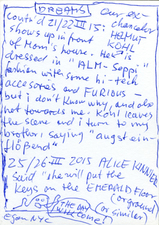 DREAMS
cont'd 21/22.III.15: Our ex-
chancellor
HELMUT
shows up in front KOHL
of Mom's house. He is
dressed in "ALM-Seppi"
fashion with some hi-tech
accesoires and FURIOUS -
but i don't know why, and also
not towards me. Kohl leaves
the scene and i turn to my
brother, saying "augstein-
flöpend"
25/26.III 2015 ALICE
said "she will put the
keys on the EMERALD Floor
(or ground)
(or similar)
welcome!
NYC